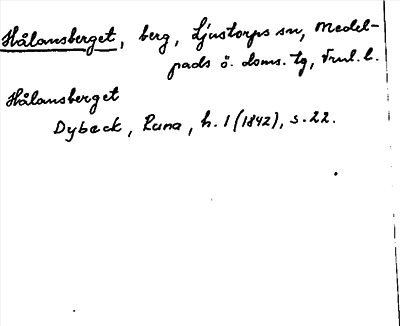 Hålansberget, berg, Ljustorps sn, Medel-
pads ö. doms. tg, Vnl. l.
Hålansberget
Dybeck, Runa, h. 1 (1842), s. 22.